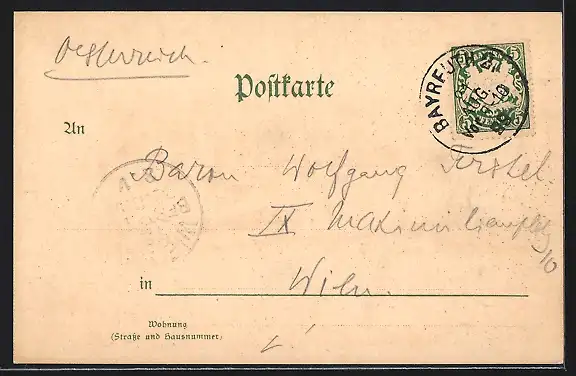 Oesterreich.
Postkarte
BAYREUTH
5 5
An
Baron Wolfgang Ferstel.
IX Maximilianplatz
10
in Wien.
Wohnung
(Straße und Hausnummer)